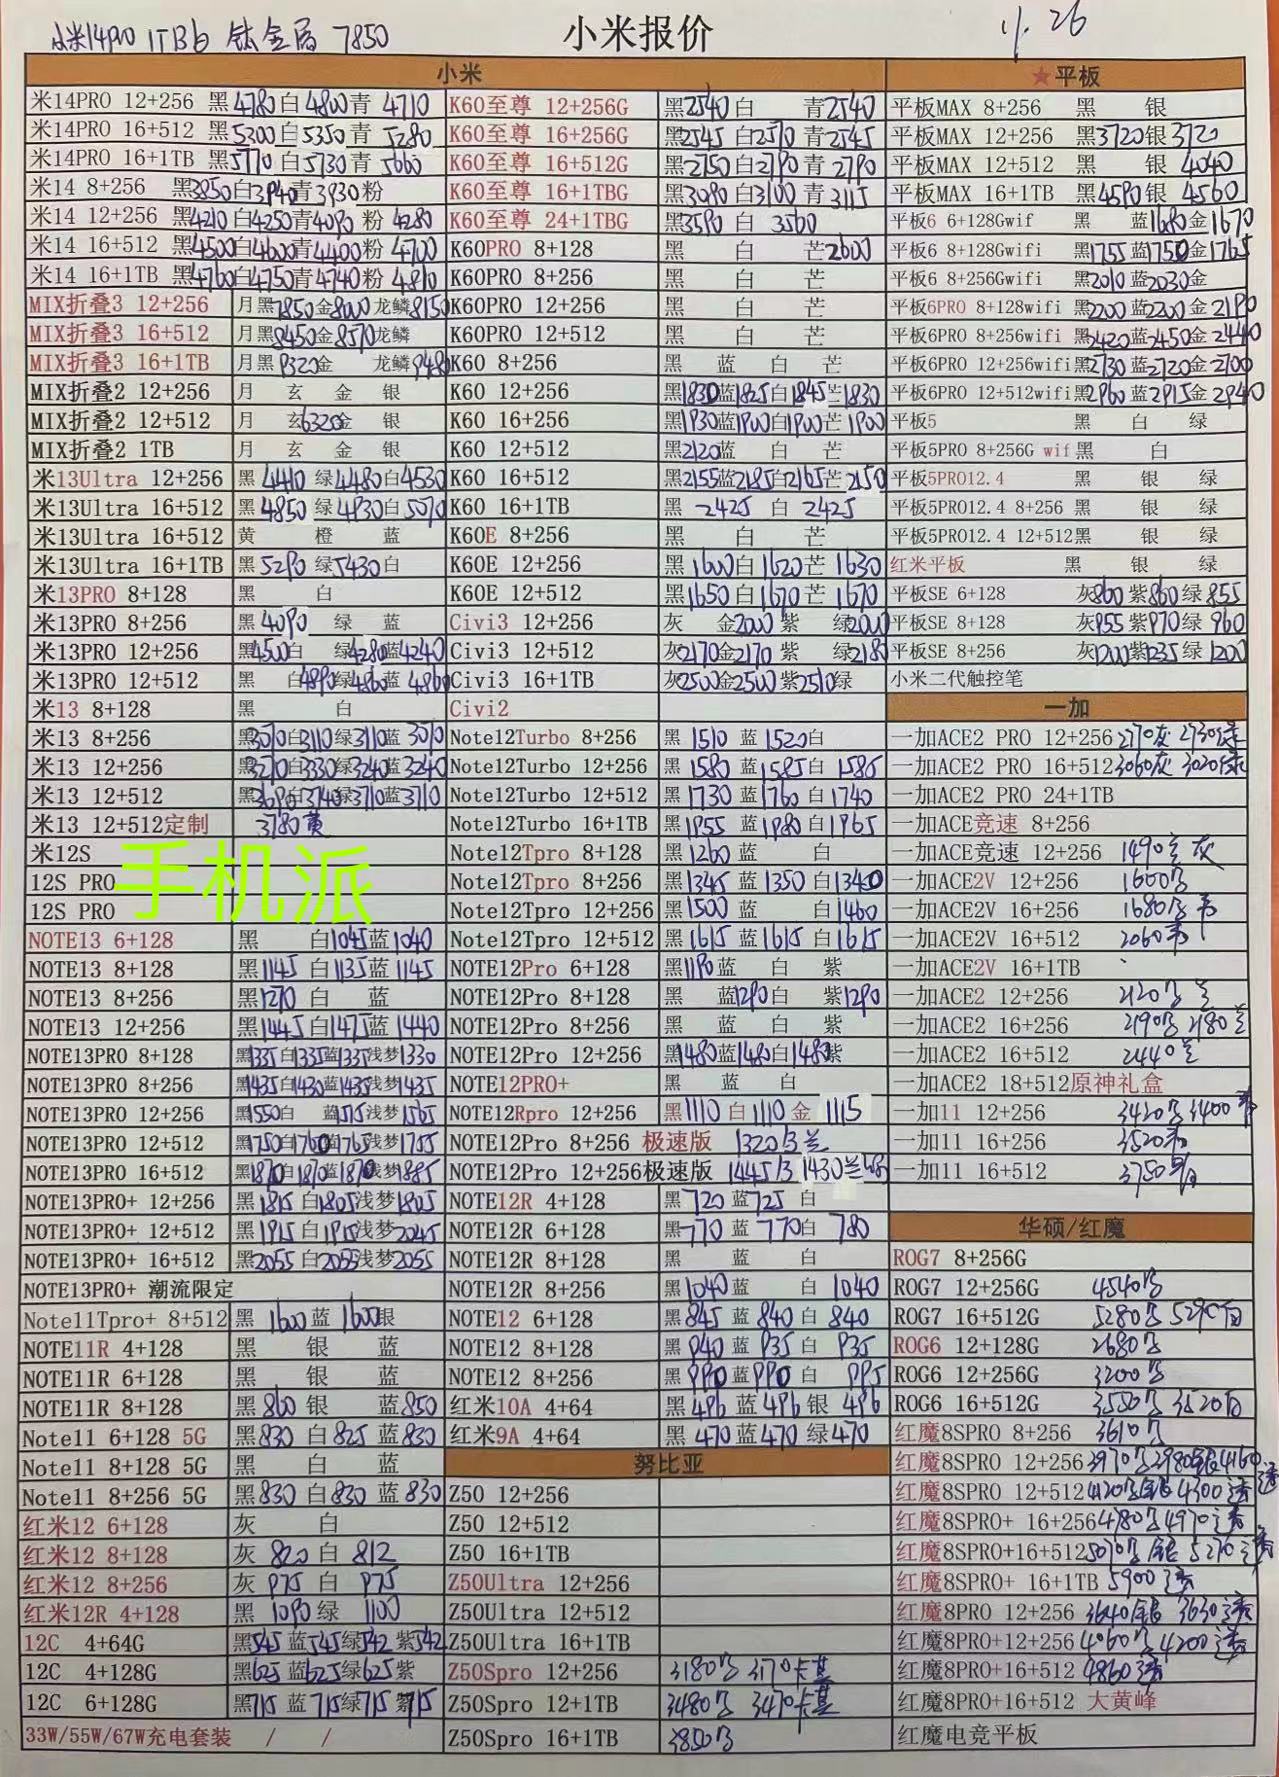 小米14pro 1TB 钛金属 7850
小米报价
11.26
小米
米14PRO 12+256 黑4780白4800青4710
米14PRO 16+512 黑5300白5350青5280
米14PRO 16+1TB 黑5770白5730青5660
米14 8+256 黑3850白3940青3930粉
米14 12+256 黑4210白4250青4090粉4280
米14 16+512 黑4500白4600青4400粉4700
米14 16+1TB 黑4760白4750青4740粉4810
MIX折叠3 12+256 月黑7850金8000龙鳞8150
MIX折叠3 16+512 月黑8450金8570龙鳞
MIX折叠3 16+1TB 月黑9320金 龙鳞9480
MIX折叠2 12+256 月 玄 金 银
MIX折叠2 12+512 月 玄6320金 银
MIX折叠2 1TB 月 玄 金 银
米13Ultra 12+256 黑4410绿4480白4530
米13Ultra 16+512 黑4850绿4930白5070
米13Ultra 16+512 黄 橙 蓝
米13Ultra 16+1TB 黑5290绿5430白
米13PRO 8+128 黑 白
米13PRO 8+256 黑4090 绿 蓝
米13PRO 12+256 黑4500白 绿4280蓝4240
米13PRO 12+512 黑 白4890绿4860蓝4860
米13 8+128 黑 白
米13 8+256 黑3070白3110绿3110蓝3070
米13 12+256 黑3270白3330绿3240蓝3240
米13 12+512 黑3690白3740绿3710蓝3710
米13 12+512定制 3780黄
米12S
12S PRO
12S PRO
手机派
NOTE13 6+128 黑 白1045蓝1040
NOTE13 8+128 黑1145白1135蓝1145
NOTE13 8+256 黑1270白 蓝
NOTE13 12+256 黑1445白1475蓝1440
NOTE13PRO 8+128 黑1335白1335蓝1335浅梦1330
NOTE13PRO 8+256 黑1435白1430蓝1435浅梦1435
NOTE13PRO 12+256 黑1550白 蓝1515浅梦1565
NOTE13PRO 12+512 黑1750白1760蓝1765浅梦1755
NOTE13PRO 16+512 黑1870白1870蓝1870浅梦1885
NOTE13PRO+ 12+256 黑1815白1805浅梦1805
NOTE13PRO+ 12+512 黑1915白1915浅梦2045
NOTE13PRO+ 16+512 黑2055白2055浅梦2055
NOTE13PRO+ 潮流限定
Note11Tpro+ 8+512 黑1600蓝1600银
NOTE11R 4+128 黑 银 蓝
NOTE11R 6+128 黑 银 蓝
NOTE11R 8+128 黑860银 蓝850
Note11 6+128 5G 黑830白825蓝830
Note11 8+128 5G 黑 白 蓝
Note11 8+256 5G 黑830白830蓝830
红米12 6+128 灰 白
红米12 8+128 灰820白812
红米12 8+256 灰975白975
红米12R 4+128 黑1090绿1100
12C 4+64G 黑545蓝545绿542紫542
12C 4+128G 黑625蓝625绿625紫
12C 6+128G 黑715蓝715绿715紫715
33W/55W/67W充电套装 / /
K60至尊 12+256G 黑2540白 青2540
K60至尊 16+256G 黑2545白2570青2545
K60至尊 16+512G 黑2750白2790青2790
K60至尊 16+1TBG 黑3090白3100青3115
K60至尊 24+1TBG 黑3590白3560
K60PRO 8+128 黑 白 芒2600
K60PRO 8+256 黑 白 芒
K60PRO 12+256 黑 白 芒
K60PRO 12+512 黑 白 芒
K60 8+256 黑 蓝 白 芒
K60 12+256 黑1830蓝1825白1845芒1830
K60 16+256 黑1930蓝1900白1900芒1900
K60 12+512 黑2120蓝 白 芒
K60 16+512 黑2155蓝2185白2165芒2150
K60 16+1TB 黑2425白2425
K60E 8+256 黑 白 芒
K60E 12+256 黑1600白1620芒1630
K60E 12+512 黑1650白1670芒1670
Civi3 12+256 灰 金2000紫 绿2000
Civi3 12+512 灰2170金2170紫 绿2180
Civi3 16+1TB 灰2500金2500紫2510绿
Civi2
Note12Turbo 8+256 黑1510蓝1520白
Note12Turbo 12+256 黑1580蓝1585白1585
Note12Turbo 12+512 黑1730蓝1760白1740
Note12Turbo 16+1TB 黑1955蓝1980白1965
Note12Tpro 8+128 黑1260蓝 白
Note12Tpro 8+256 黑1345蓝1350白1340
Note12Tpro 12+256 黑1500蓝 白1460
Note12Tpro 12+512 黑1615蓝1615白1615
NOTE12Pro 6+128 黑1190蓝 白 紫
NOTE12Pro 8+128 黑 蓝1290白 紫1290
NOTE12Pro 8+256 黑 蓝 白 紫
NOTE12Pro 12+256 黑1480蓝1480白1480紫
NOTE12PRO+ 黑 蓝 白
NOTE12Rpro 12+256 黑1110白1110金1115
NOTE12Pro 8+256 极速版 1320
NOTE12Pro 12+256极速版 1445 1430
NOTE12R 4+128 黑720蓝725白
NOTE12R 6+128 黑770蓝770白780
NOTE12R 8+128 黑 蓝 白
NOTE12R 8+256 黑1040蓝 白1040
NOTE12 6+128 黑845蓝840白840
NOTE12 8+128 黑940蓝935白935
NOTE12 8+256 黑990蓝990白995
红米10A 4+64 黑496蓝496银496
红米9A 4+64 黑470蓝470绿470
努比亚
Z50 12+256
Z50 12+512
Z50 16+1TB
Z50Ultra 12+256
Z50Ultra 12+512
Z50Ultra 16+1TB
Z50Spro 12+256 3180 3170
Z50Spro 12+1TB 3480 3470
Z50Spro 16+1TB 3850
★平板
平板MAX 8+256 黑 银
平板MAX 12+256 黑3720银3720
平板MAX 12+512 黑 银4040
平板MAX 16+1TB 黑4590银4560
平板6 6+128Gwif 黑 蓝1680金1670
平板6 8+128Gwifi 黑1755蓝1750金1765
平板6 8+256Gwifi 黑2010蓝2030金
平板6PRO 8+128wifi 黑2200蓝2200金2190
平板6PRO 8+256wifi 黑2420蓝2450金2440
平板6PRO 12+256wifi黑2730蓝2720金2700
平板6PRO 12+512wifi黑2960蓝2915金2940
平板5 黑 白 绿
平板5PRO 8+256G wif黑 白
平板5PRO12.4 黑 银 绿
平板5PRO12.4 8+256 黑 银 绿
平板5PRO12.4 12+512黑 银 绿
红米平板 黑 银 绿
平板SE 6+128 灰860紫860绿855
平板SE 8+128 灰955紫970绿960
平板SE 8+256 灰1200紫1235绿1200
小米二代触控笔
一加
一加ACE2 PRO 12+256 2770灰 2730绿
一加ACE2 PRO 16+512 3060灰 3020绿
一加ACE2 PRO 24+1TB
一加ACE竞速 8+256
一加ACE竞速 12+256 1490兰 灰
一加ACE2V 12+256 1600
一加ACE2V 16+256 1680
一加ACE2V 16+512 2060
一加ACE2V 16+1TB
一加ACE2 12+256 2120
一加ACE2 16+256 2190 2180兰
一加ACE2 16+512 2440兰
一加ACE2 18+512原神礼盒
一加11 12+256 3420 3400
一加11 16+256 3520
一加11 16+512 3750
华硕/红魔
ROG7 8+256G
ROG7 12+256G 4540
ROG7 16+512G 5280 5290白
ROG6 12+128G 2680
ROG6 12+256G 3200
ROG6 16+512G 3550 3520白
红魔8SPRO 8+256 3610
红魔8SPRO 12+256 3970 3980银4160透
红魔8SPRO 12+512 4120 银 4300透
红魔8SPRO+ 16+256 4780 4970透
红魔8SPRO+16+512 5070 银 5270透
红魔8SPRO+ 16+1TB 5900透
红魔8PRO 12+256 3640银 3630透
红魔8PRO+12+256 4060 4200透
红魔8PRO+16+512 4860透
红魔8PRO+16+512 大黄峰
红魔电竞平板